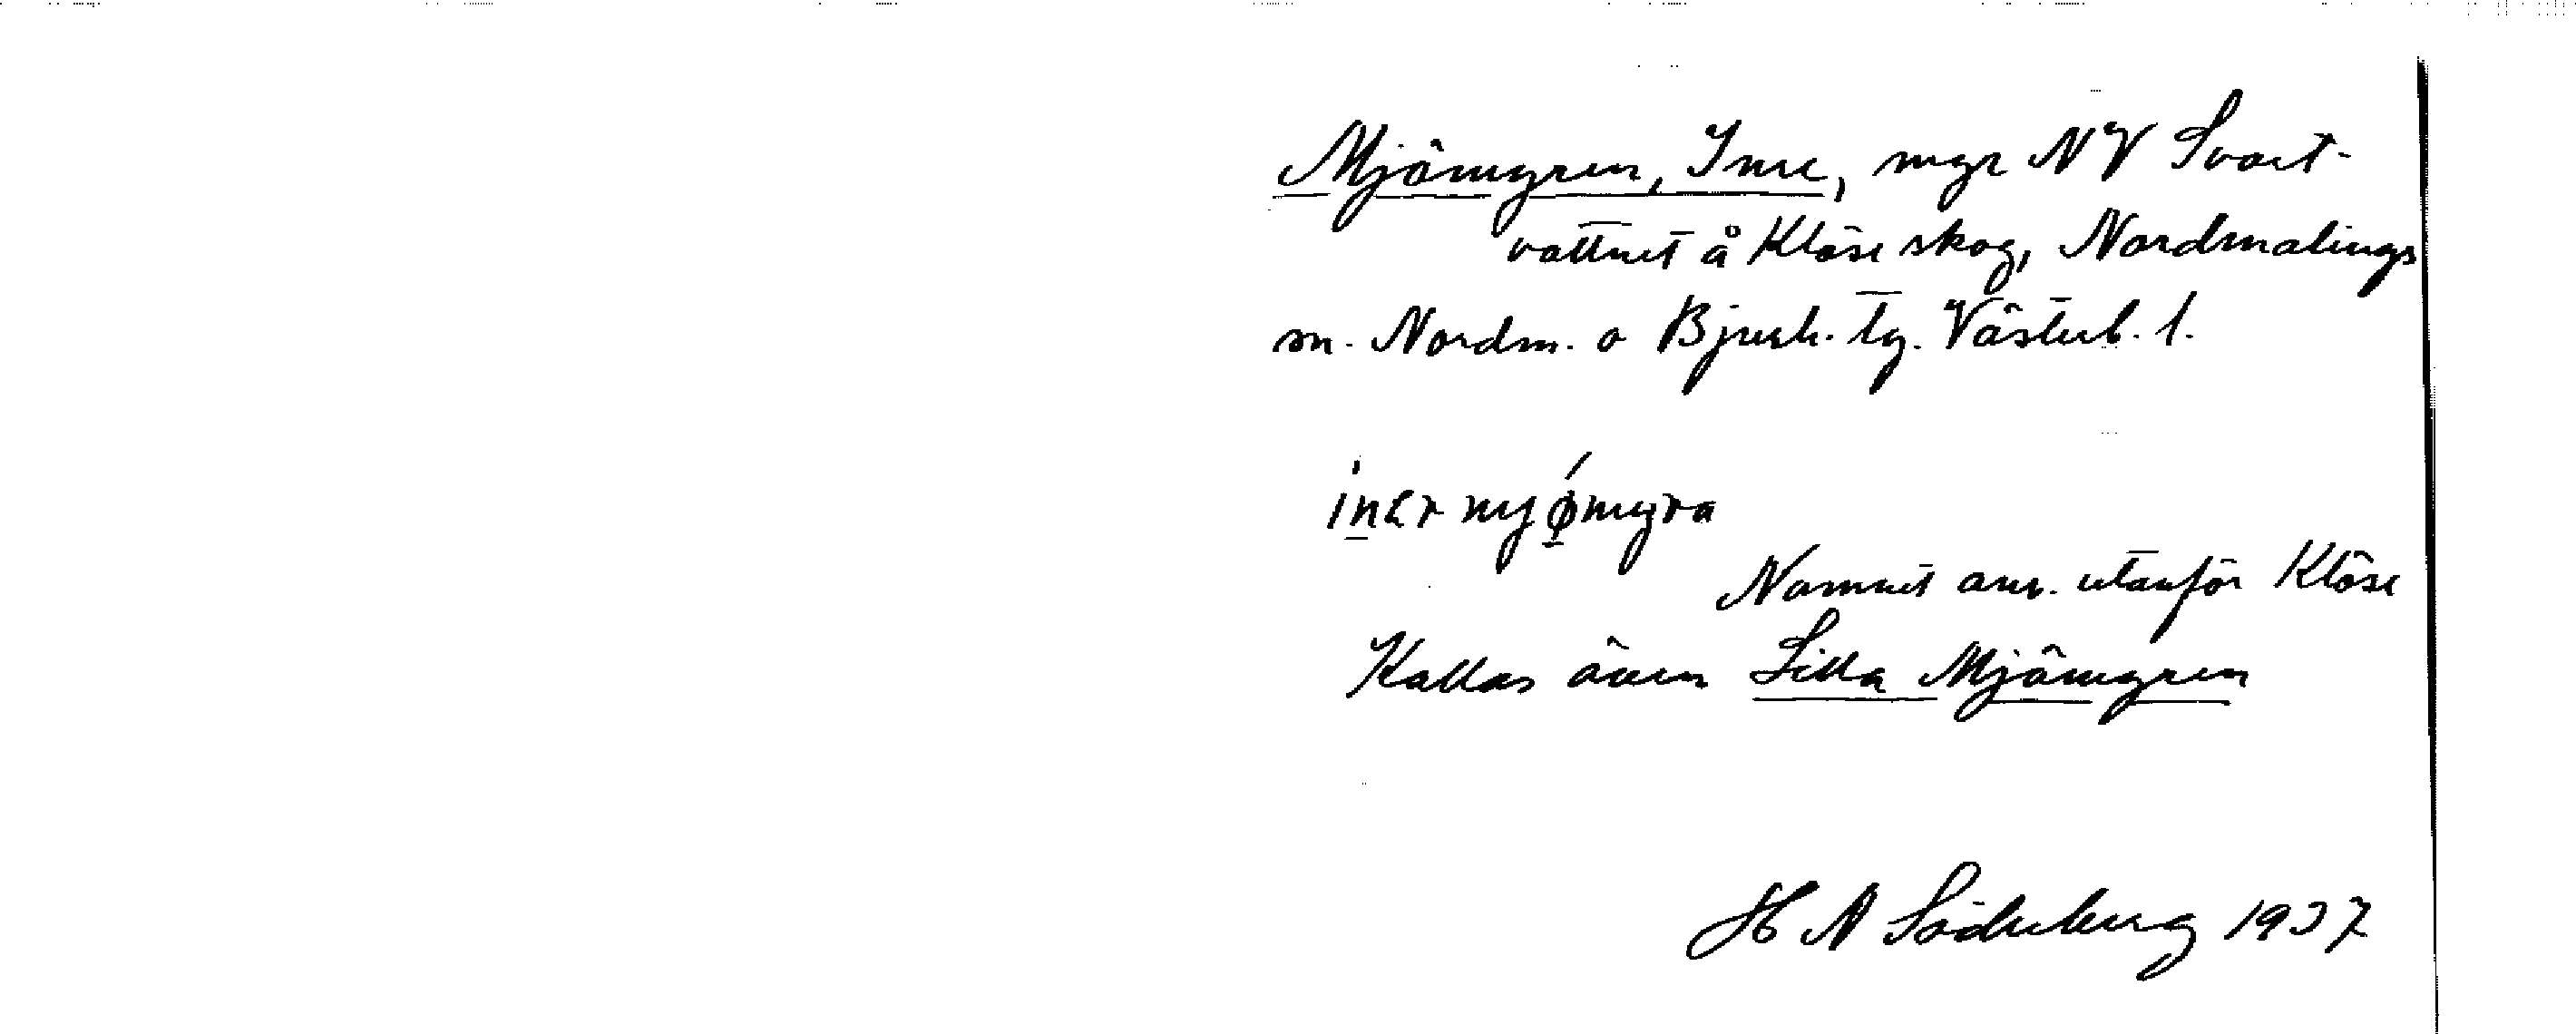 Mjömyren, Inre, myr NV Svart-
vattnet å Klöse skog, Nordmalings
sn. Nordm. o Bjurh. tg. Västerb. l.
Namnet anv. utanför Klöse
Kallas även Lilla Mjömyren
H N Söderberg 1937